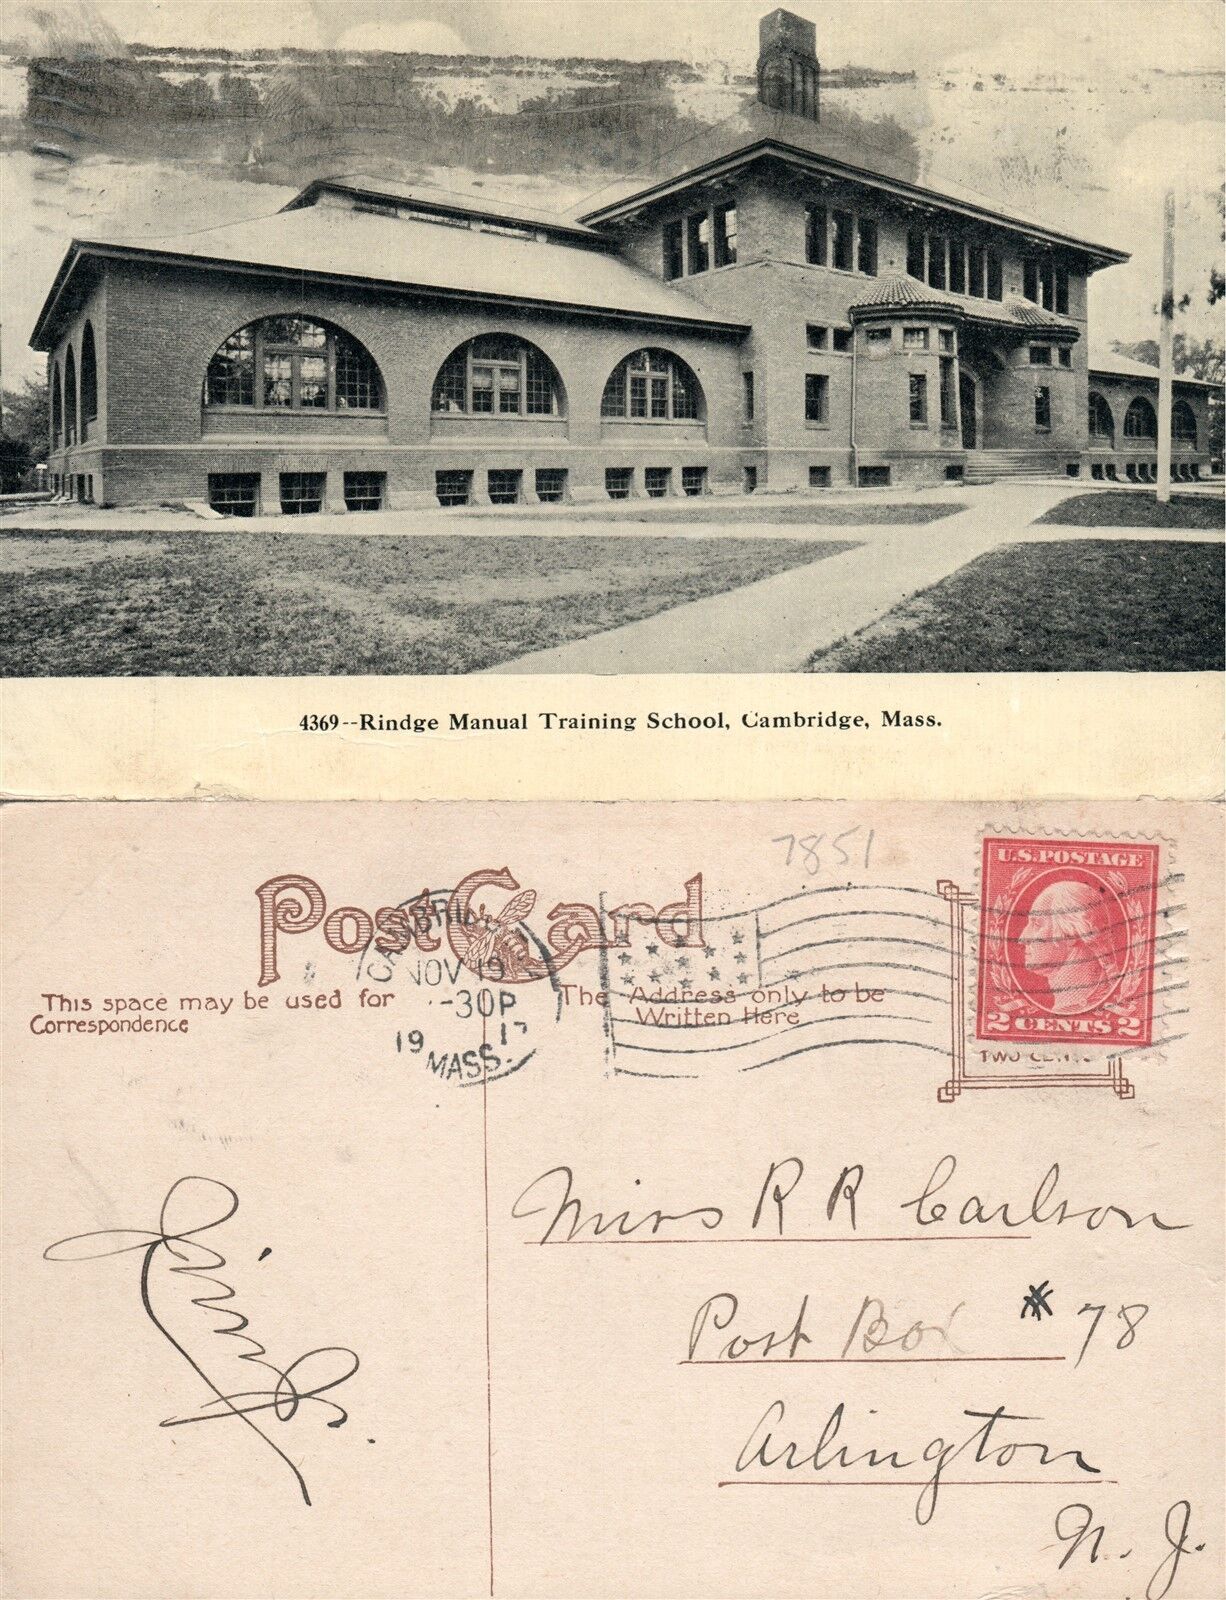 4369--Rindge Manual Training School, Cambridge, Mass.
7851
Post Card
U.S. POSTAGE
2 CENTS 2
CAMBRID
NOV 19
-30P
19 17
MASS.
This space may be used for
Correspondence
The Address only to be
Written Here
TWO CENTS
Miss R R Carlson
Post Box # 78
Arlington
N. J.